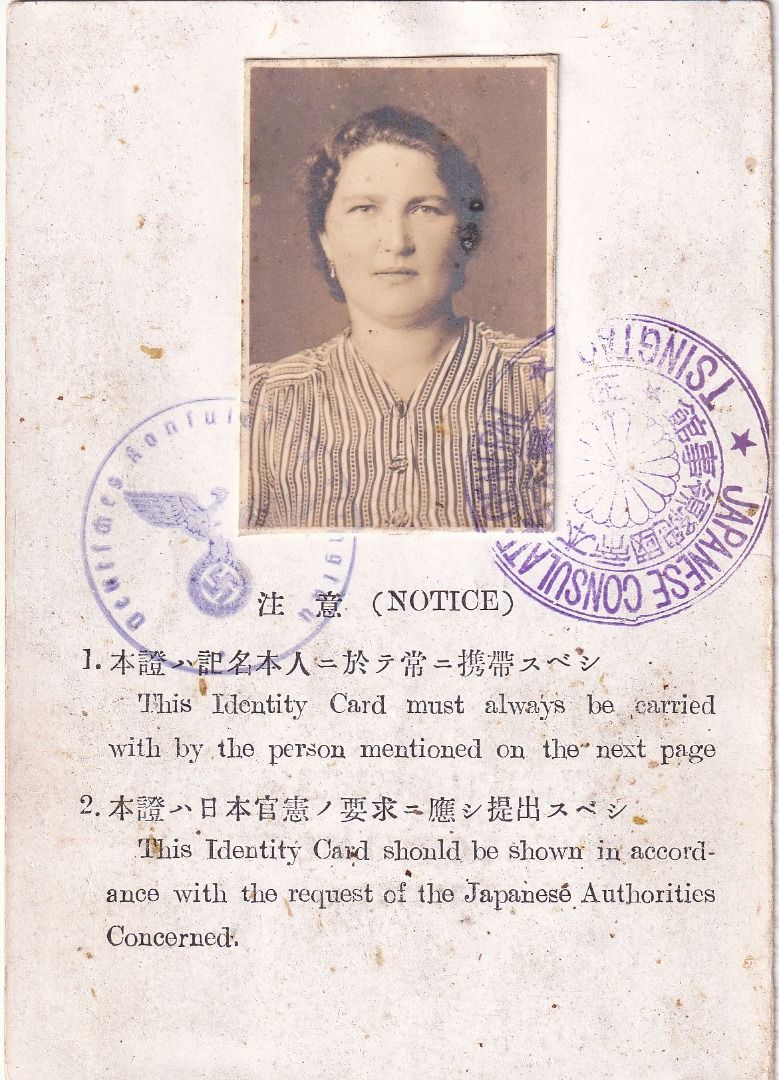 Deutsches Konsul
ngtau
TSINGTAO
JAPANESE CONSULAT
館事領總國帝本
注意 (NOTICE)
1. 本證ハ記名本人ニ於テ常ニ携帶スベシ
This Identity Card must always be carried
with by the person mentioned on the next page
2. 本證ハ日本官憲ノ要求ニ應シ提出スベシ
This Identity Card should be shown in accord-
ance with the request of the Japanese Authorities
Concerned.